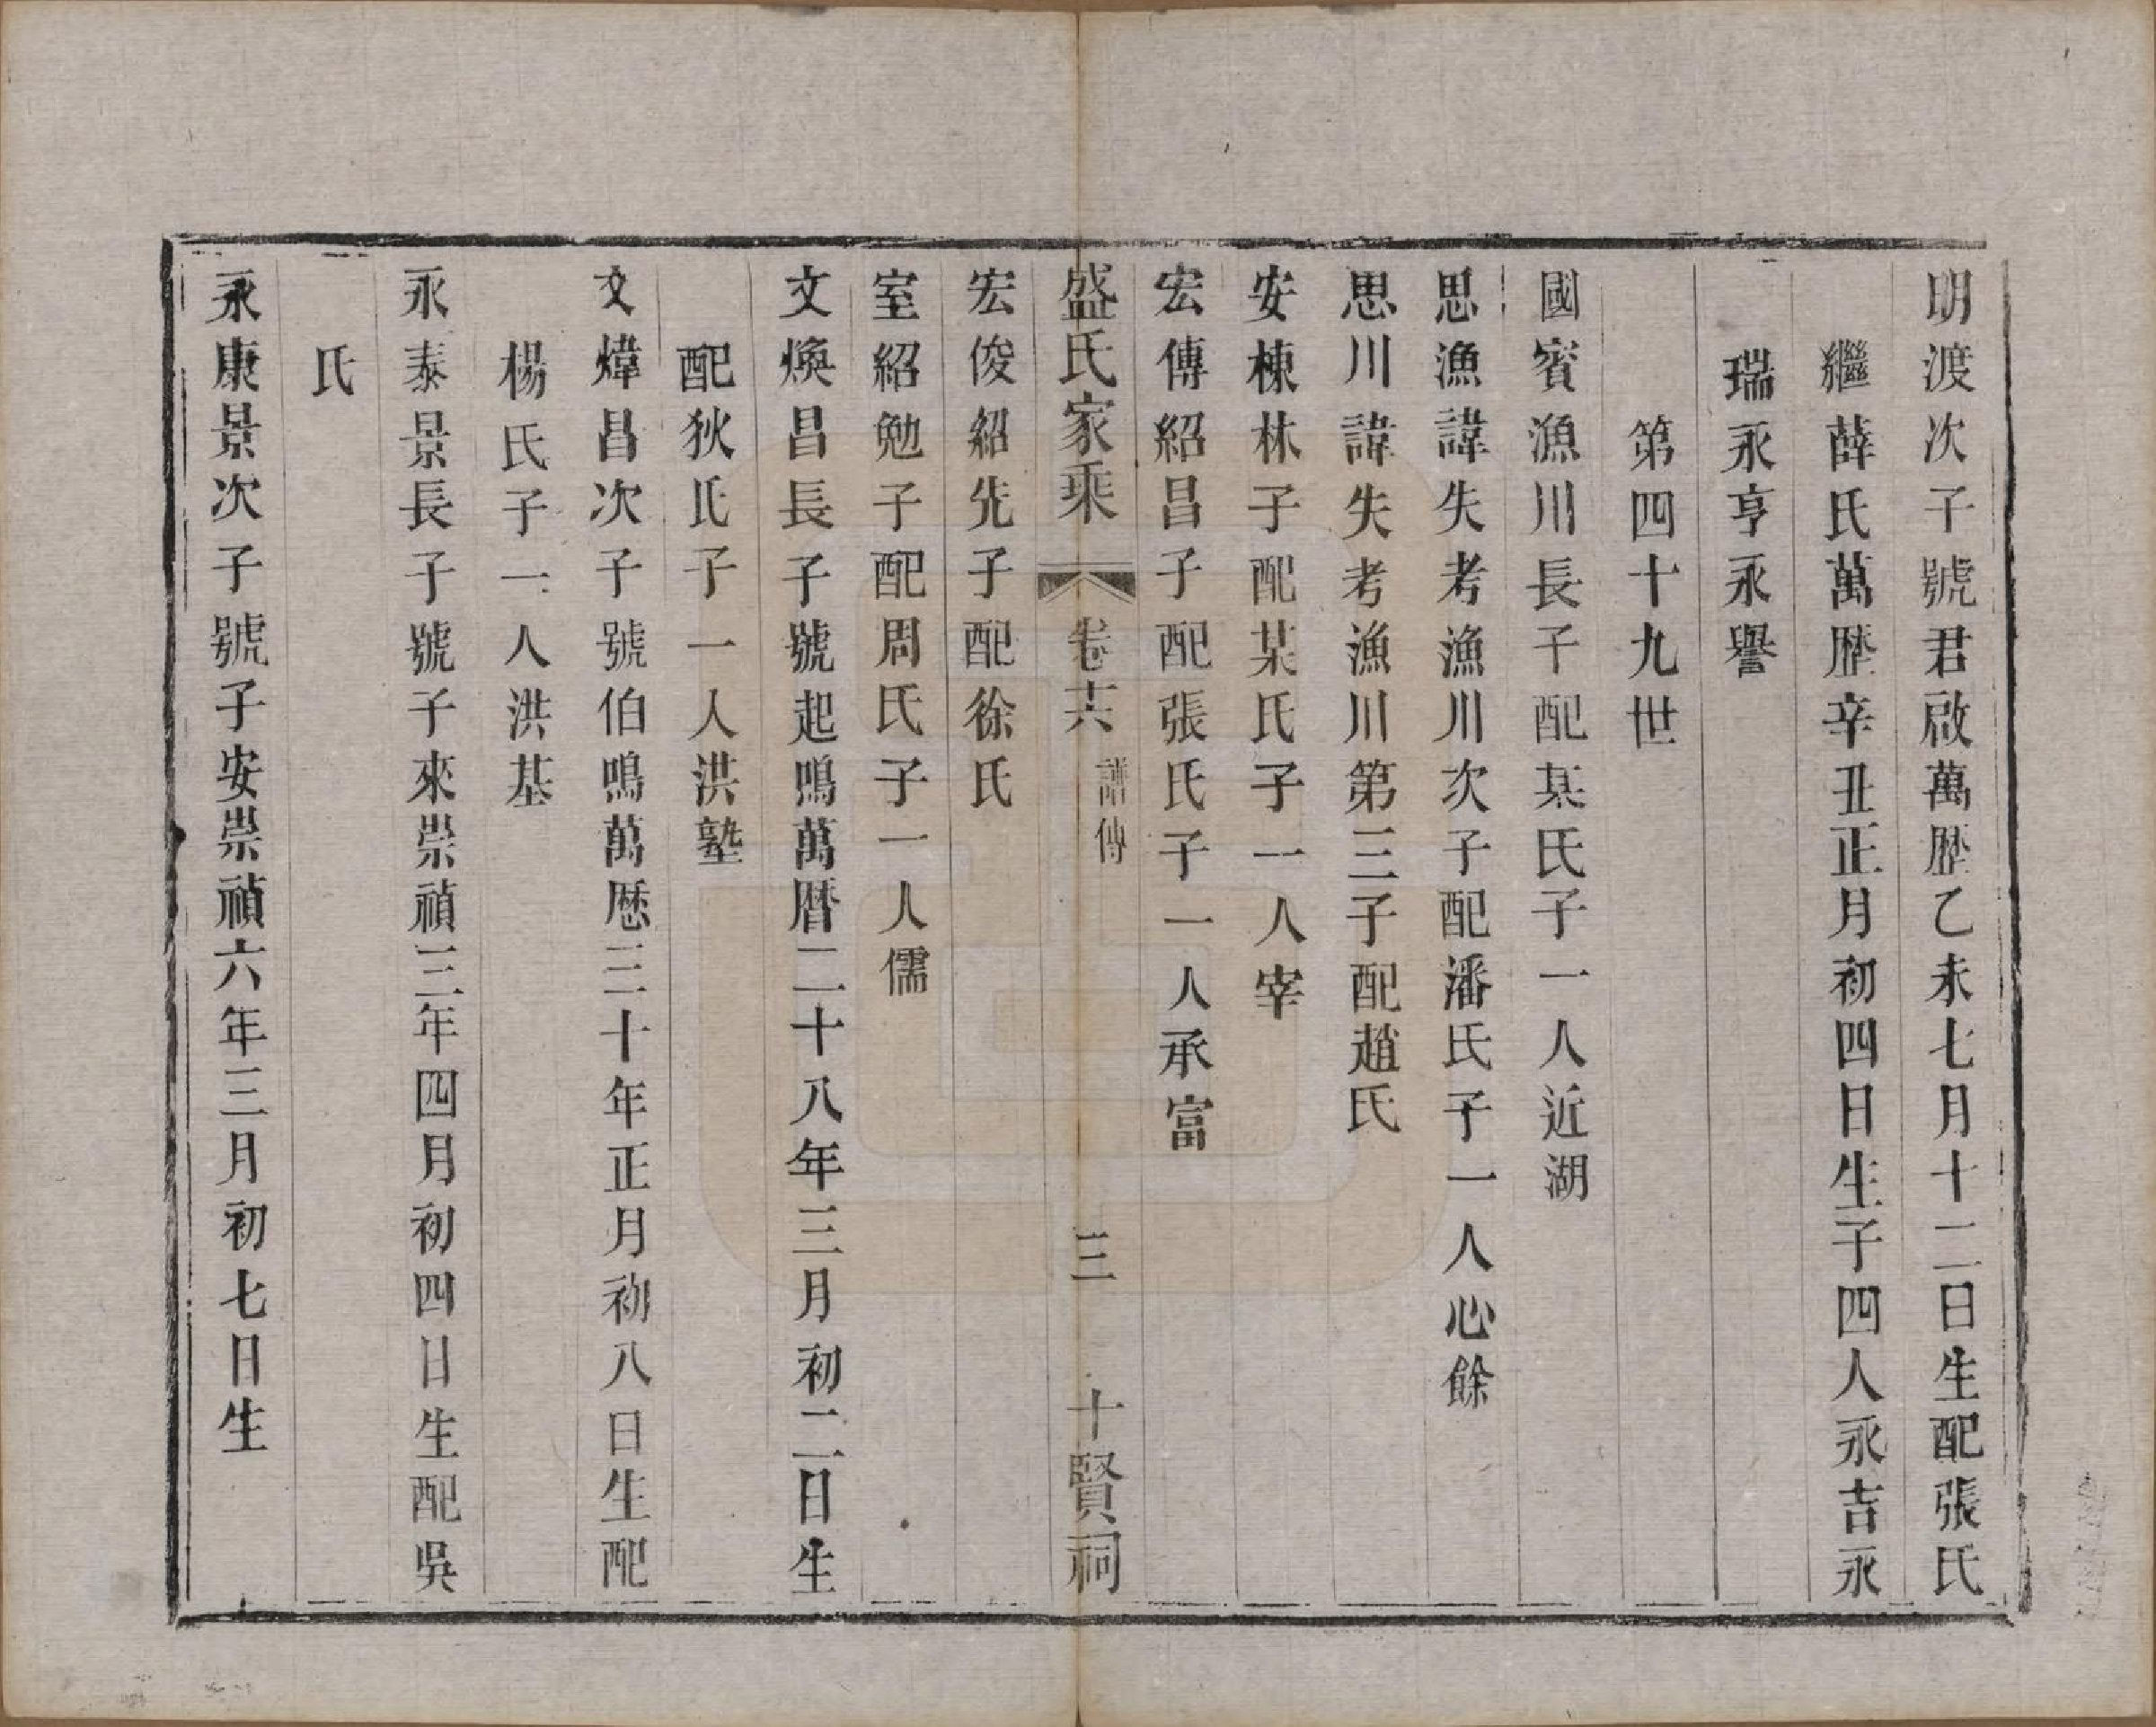 明渡次子號君啟萬歷乙未七月十二日生配張氏
繼薛氏萬歷辛丑正月初四日生子四人永吉永
瑞永亨永譽
第四十九世
國賓漁川長子配某氏子一人近湖
思漁諱失考漁川次子配潘氏子一人心餘
思川諱失考漁川第三子配趙氏
安棟林子配某氏子一人宰
宏傳紹昌子配張氏子一人承富
盛氏家乘 卷十六 譜傳 三 十賢祠
宏俊紹先子配徐氏
室紹勉子配周氏子一人儒
文煥昌長子號起鳴萬曆二十八年三月初二日生
配狄氏子一人洪塾
文煒昌次子號伯鳴萬歷三十年正月初八日生配
楊氏子一人洪基
永泰景長子號子來崇禎三年四月初四日生配吳
氏
永康景次子號子安崇禎六年三月初七日生